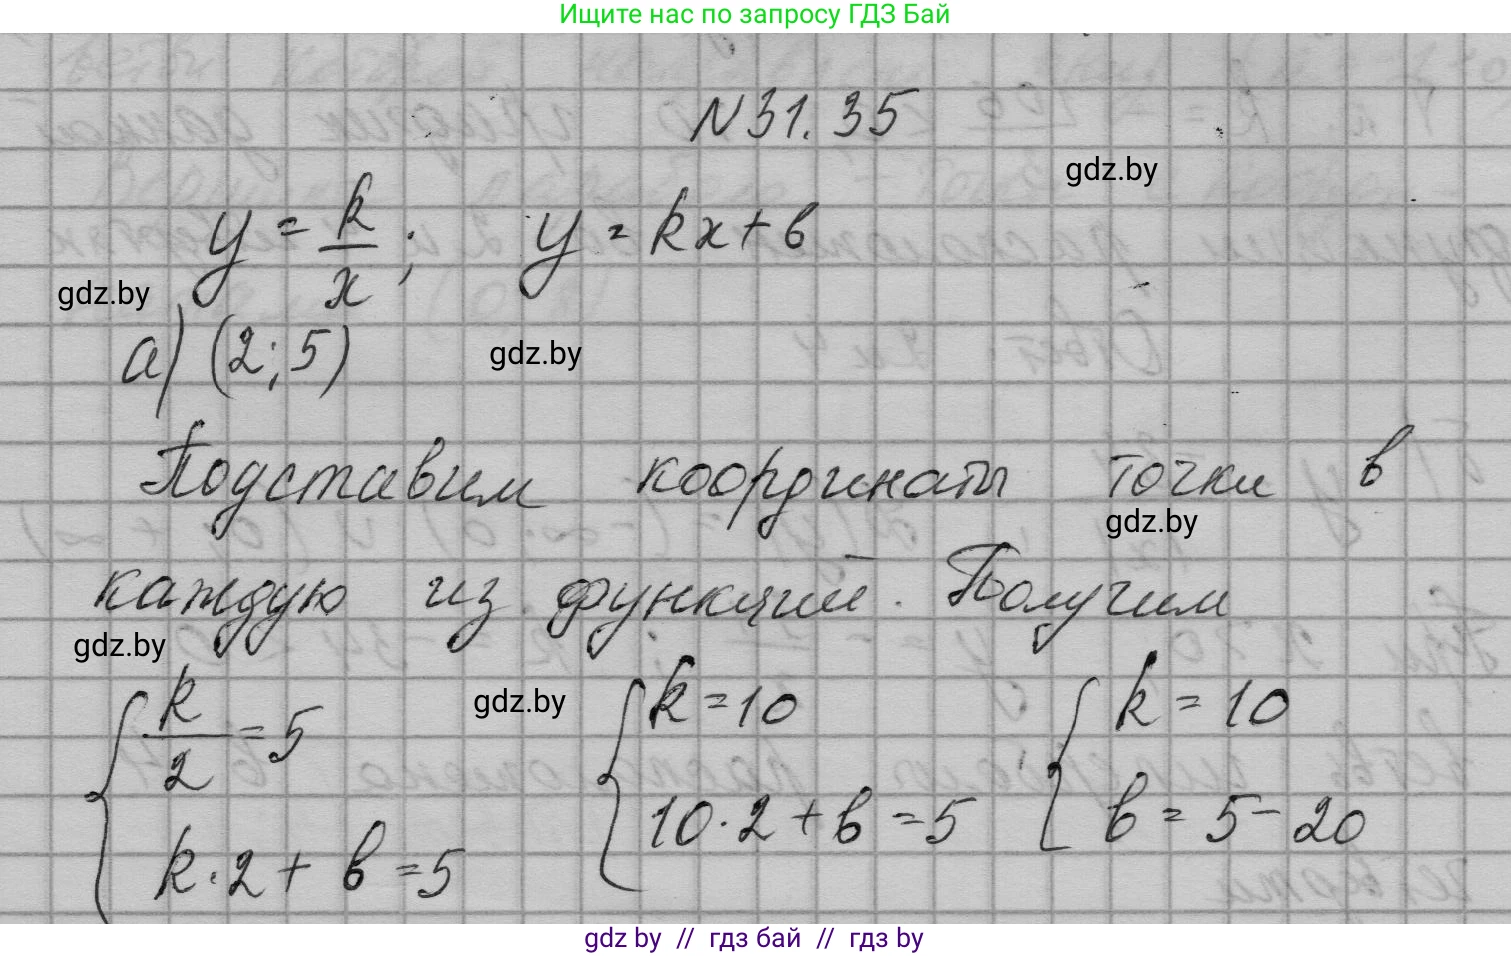 Ищите нас по запросу ГДЗ Бай
N31.35
gdz.by
y = k/x ; y = kx + b
gdz.by
а) (2; 5)
gdz.by
Подставим координаты точки в
gdz.by
каждую из функций. Получим
gdz.by
gdz.by
{ k/2 = 5 { k = 10 { k = 10
k · 2 + b = 5 10 · 2 + b = 5 b = 5 - 20
gdz by // гдз бай // гдз by